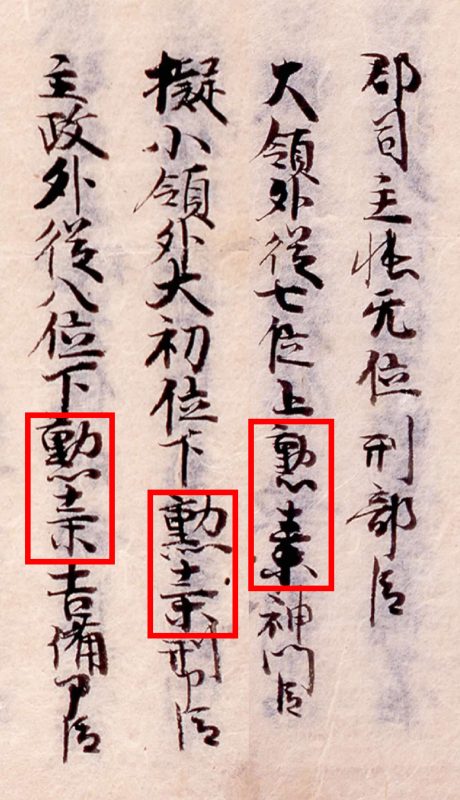 郡司主帳无位刑部臣
大領外從七位上勲業神門臣
擬小領外大初位下勲業刑卩臣
主政外從八位下勲業吉備卩臣